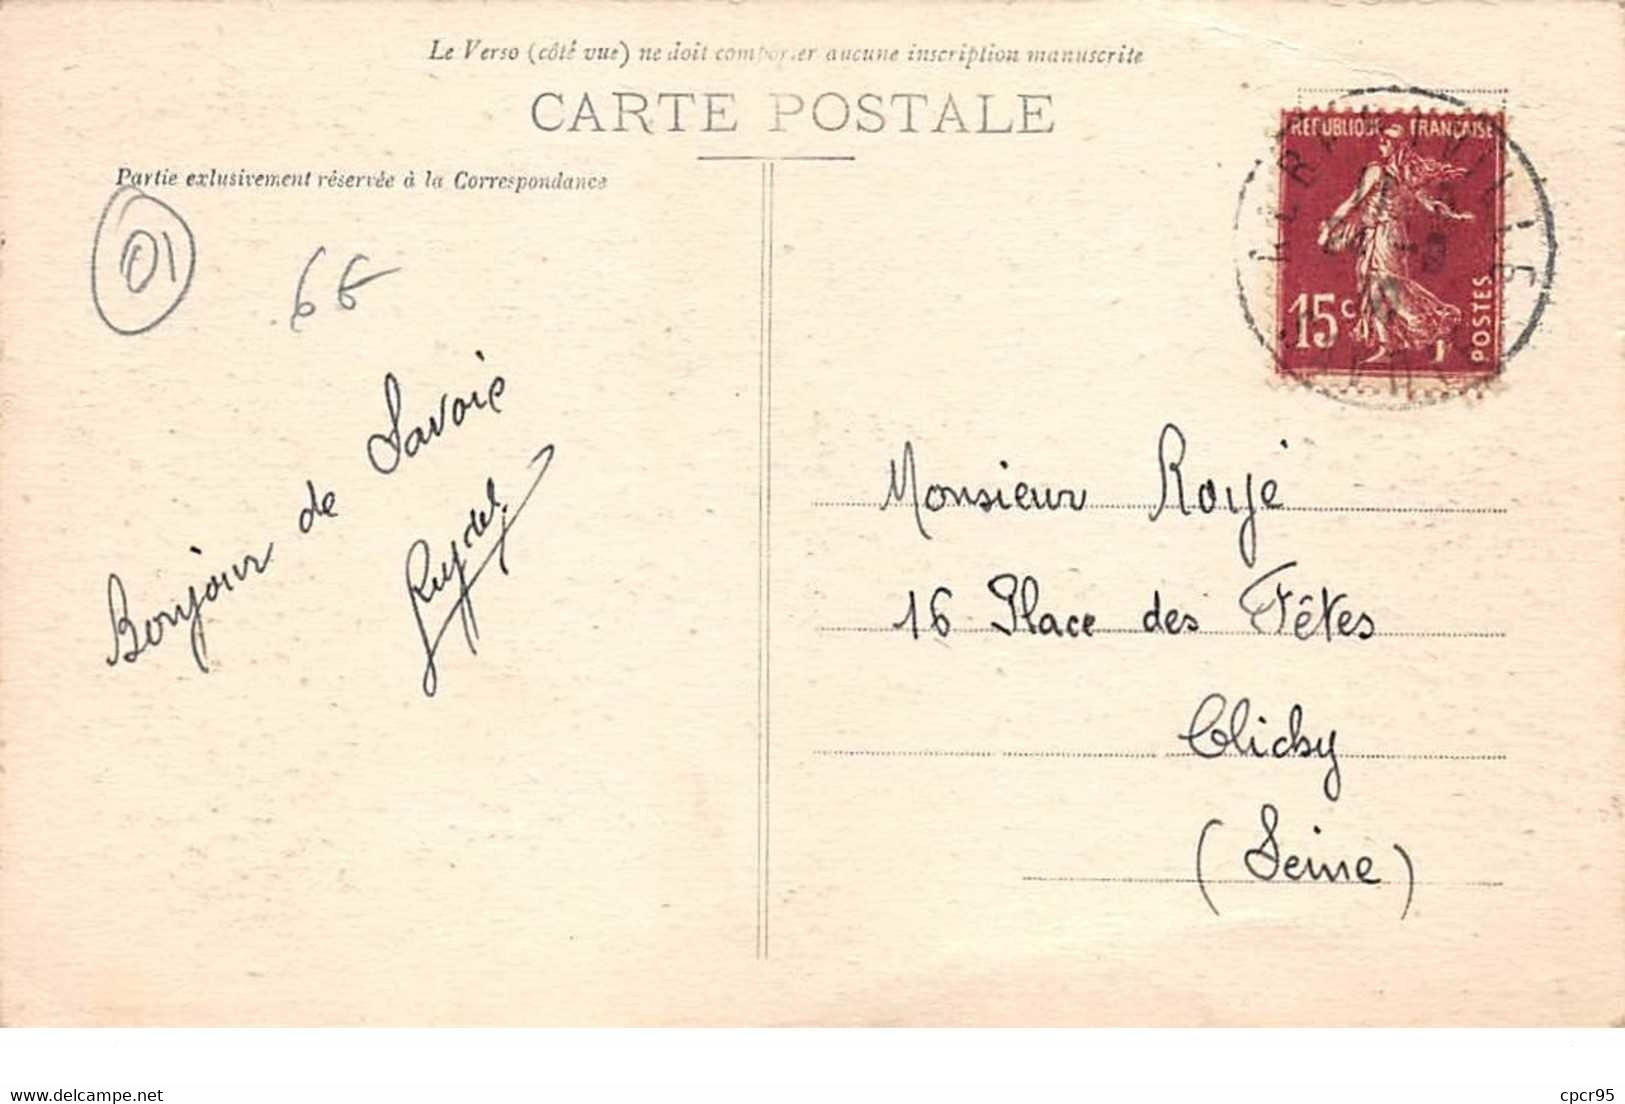 Le Verso (côté vue) ne doit comporter aucune inscription manuscrite
CARTE POSTALE
Partie exlusivement réservée à la Correspondance
REPUBLIQUE FRANÇAISE
15c
POSTES
01
6€
Bonjour de Savoie
Monsieur Royé
16 Place des Fêtes
Clichy
(Seine)
www.delcampe.net
cpcr95